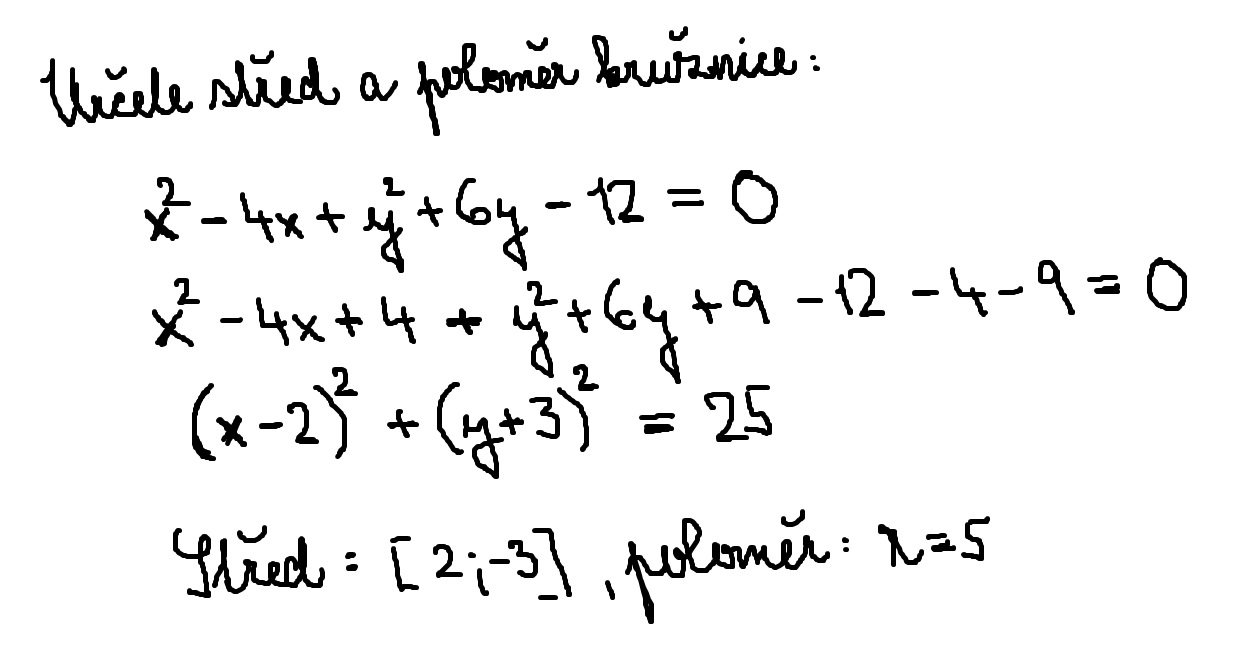 Určete střed a poloměr kružnice:
x² - 4x + y² + 6y - 12 = 0
x² - 4x + 4 + y² + 6y + 9 - 12 - 4 - 9 = 0
(x - 2)² + (y + 3)² = 25
Střed = [2;-3], poloměr: r = 5